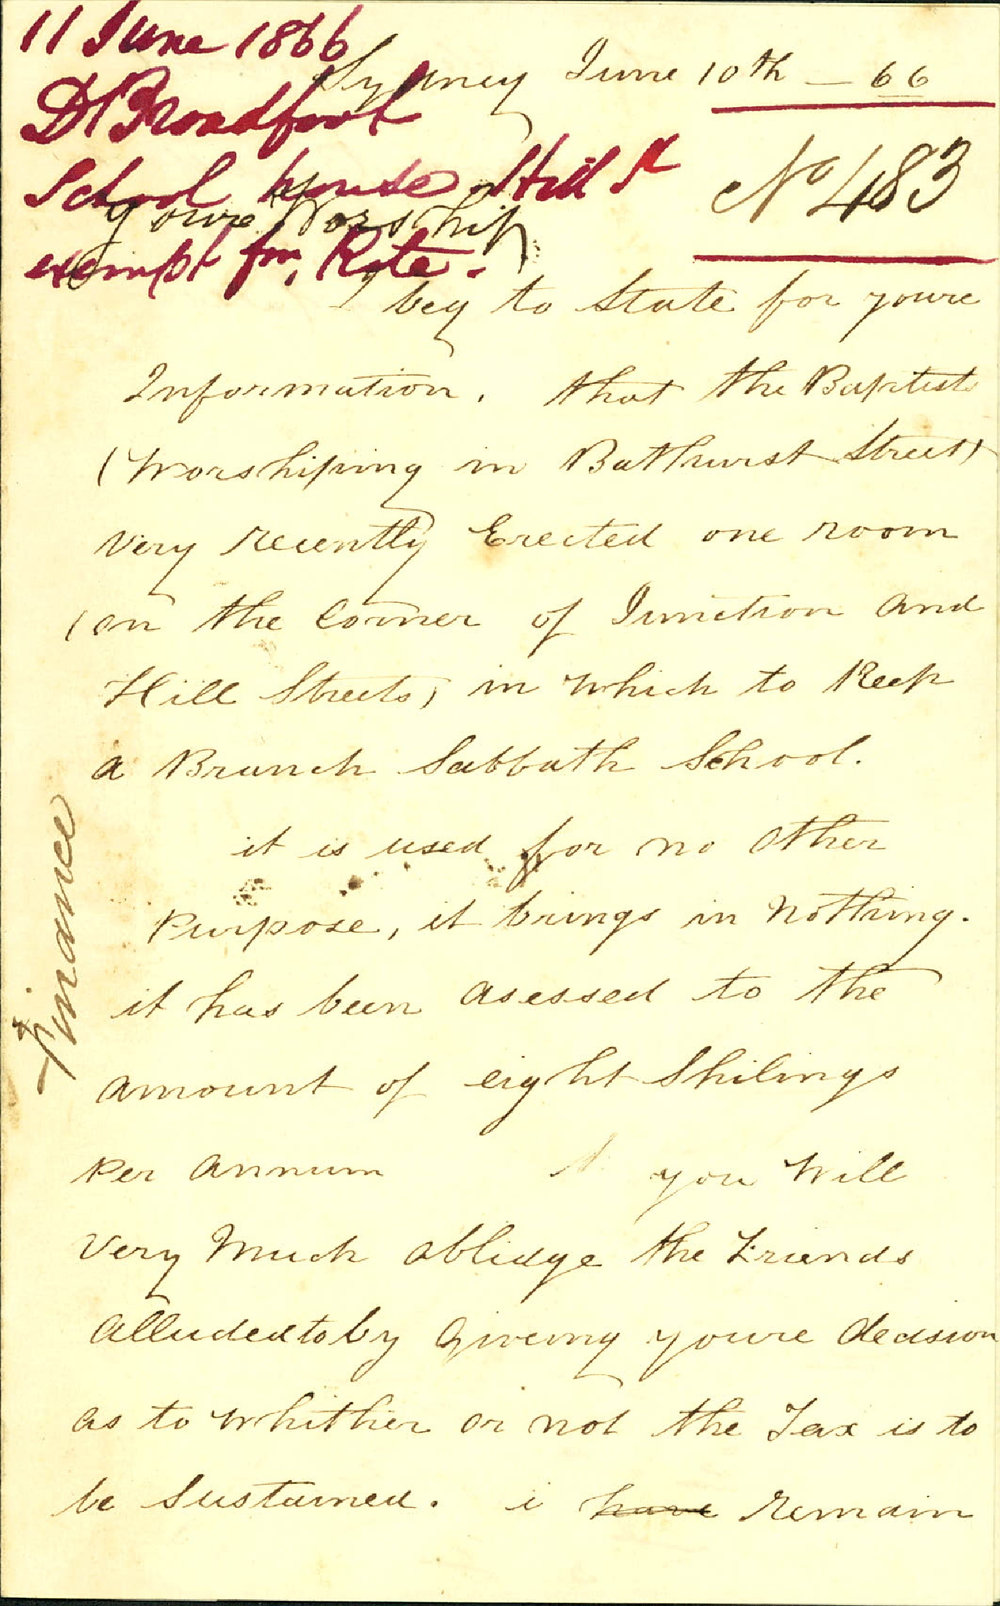 11 June 1866
D Broadfoot
School house Hill St
exempt fm, Rate.
Sydney June 10th — 66
No 483
Youre Worship
I beg to State for youre
Information. that the Baptist
(Worshiping in Bathurst Street)
very recently Erected one room
(on the Corner of Junction and
Hill Streets) in which to Keep
a Branch Sabbath School.
it is used for no other
Purpose, it brings in Nothing.
it has been asessed to the
amount of eight Shilings
Per annum you Will
Very Much oblidge the Friends
alluded to by Giveing youre decision
as to Whither or not the Tax is to
be Sustained. i have remain
Finance